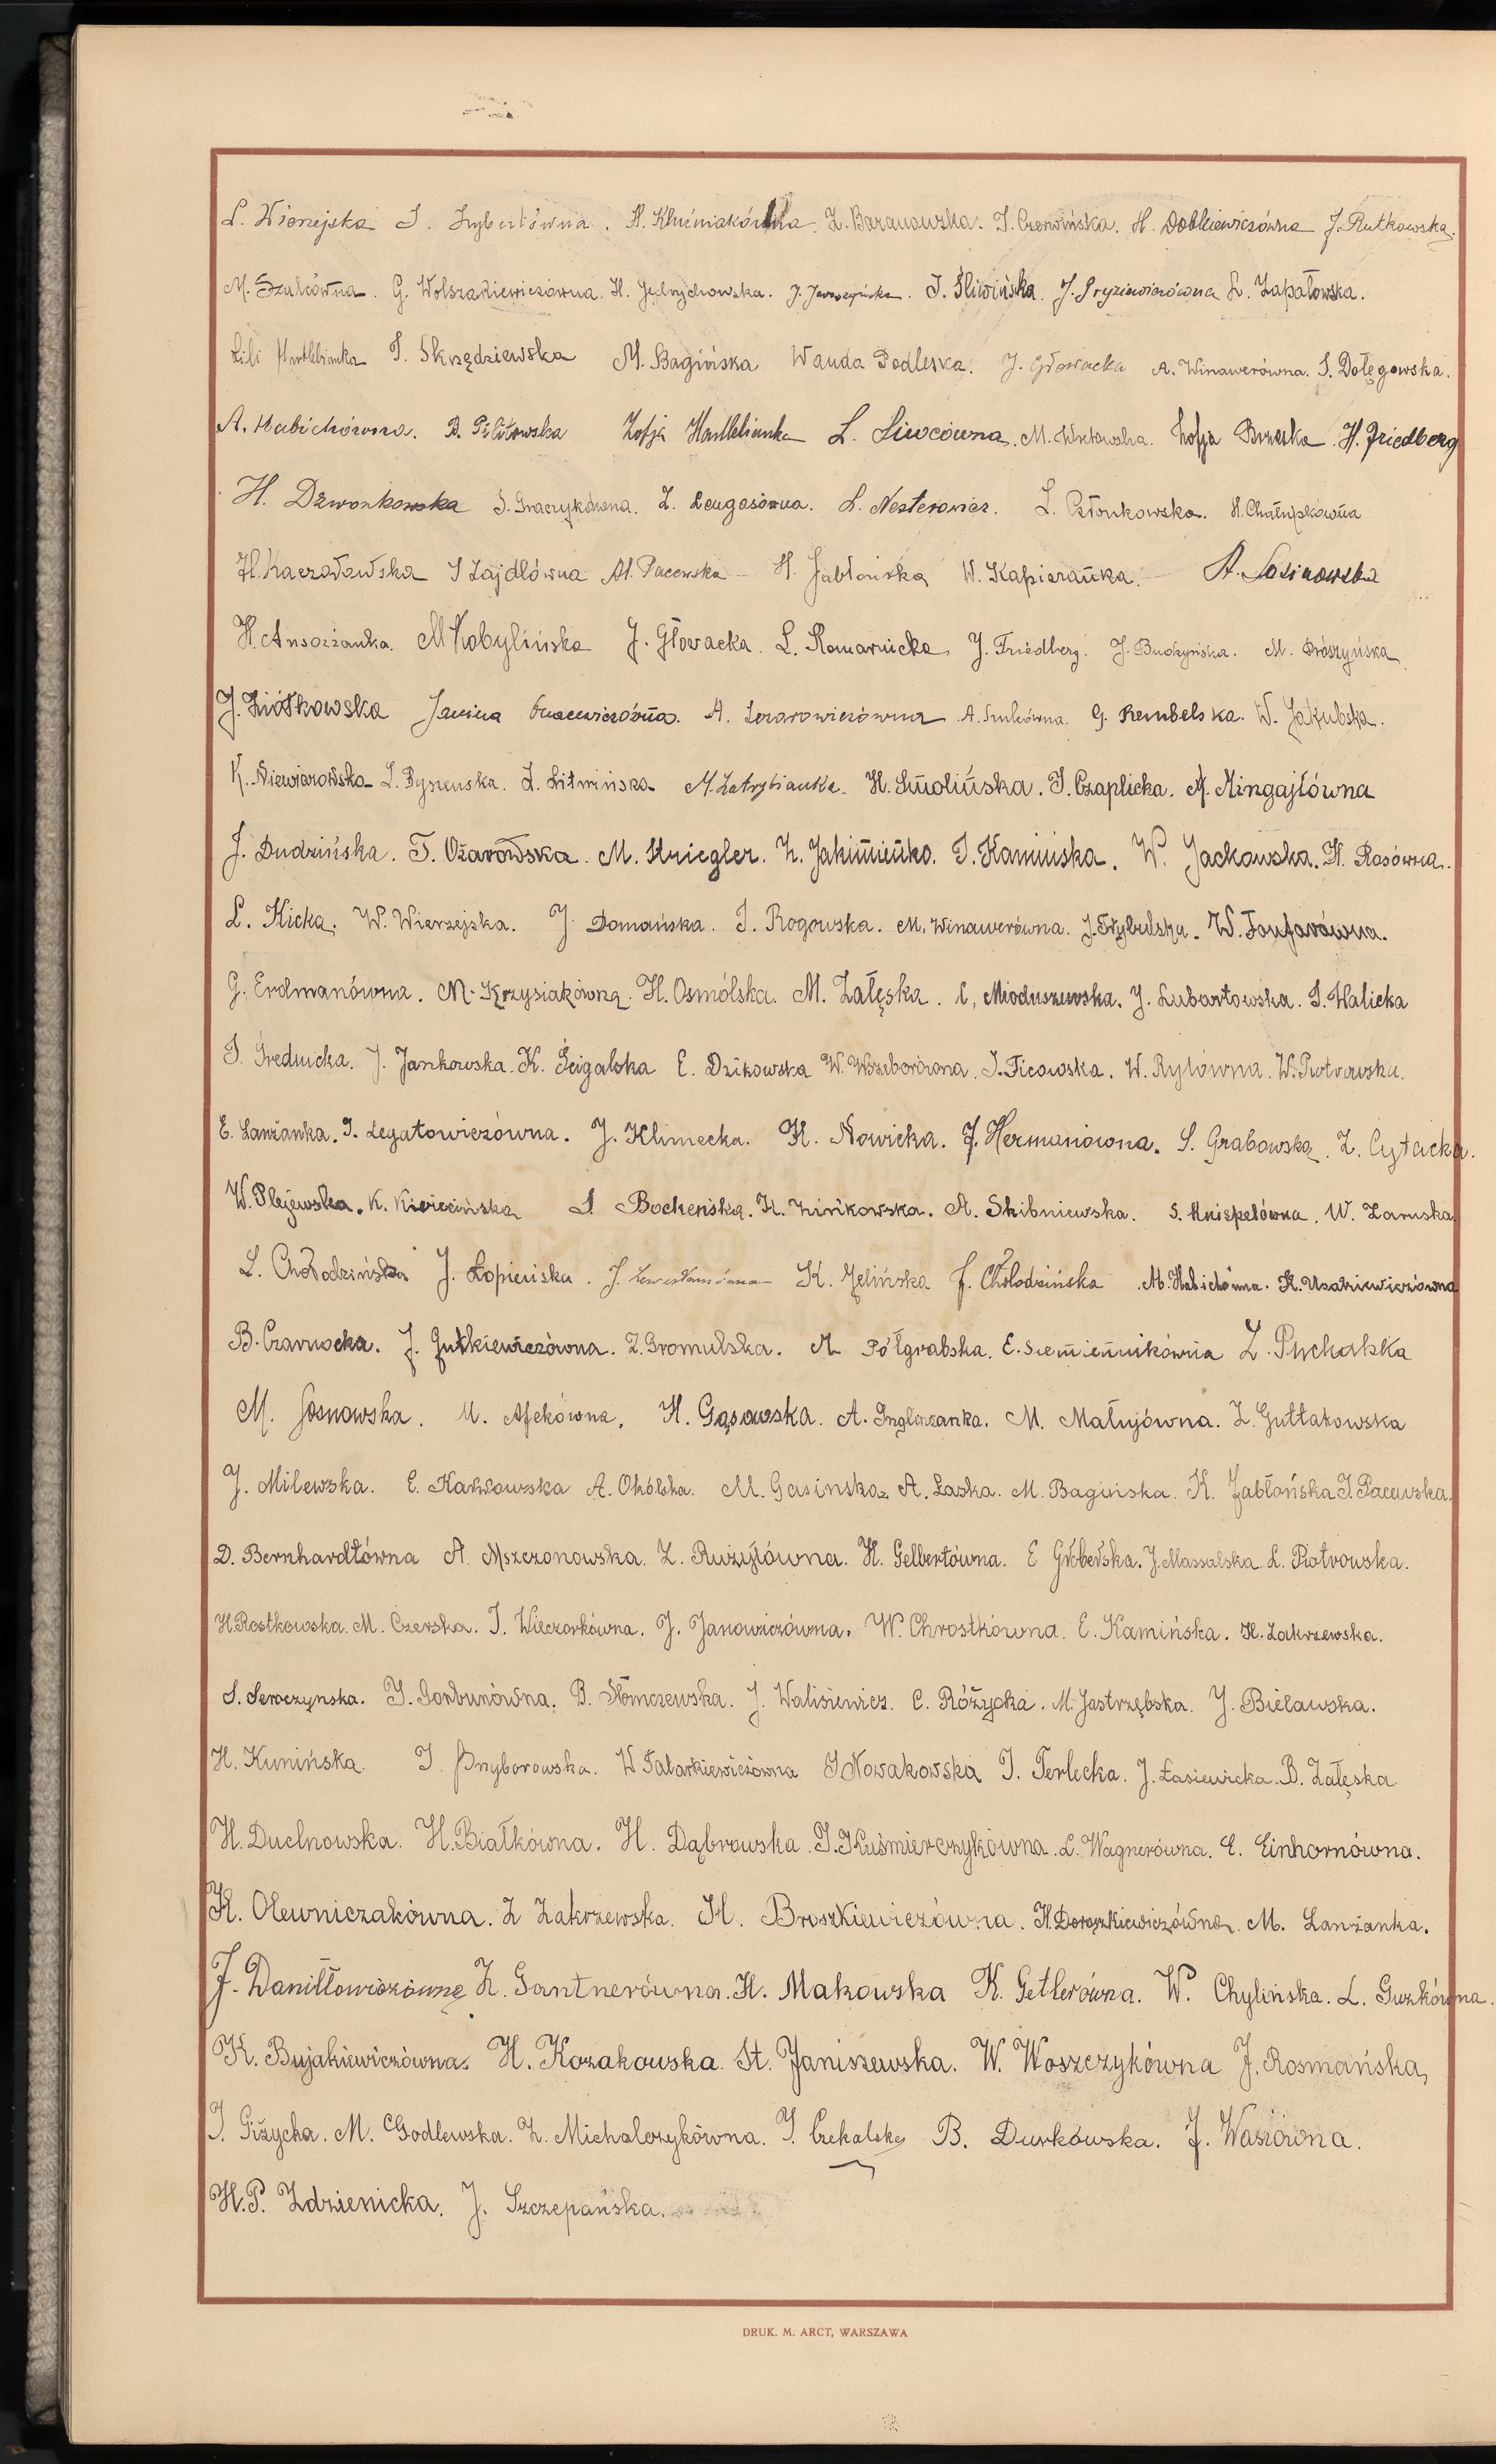 L. Wierzejska J. H. Kluźniakówna. Z. Baranowska. J. Czerwińska. H. Dobkiewiczówna J. Rutkowska.
M. Szulcówna. G. Wolszakiewiczówna. H. Jędrychowska. J. J. Śliwińska. J. Gryziewiczówna Z. Zapałowska.
Lili J. Skrzędziewska M. Bagińska Wanda Podleska. J. Głowacka A. Winawerówna. S. Dołęgowska.
A. Habichówna. B. Pilitowska Zofja L. Siwcówna. M. Zofja Brzeska H. Friedberg
H. Dzwonkowska S. Graczykówna. Z. Lengasówna. L. Nesterowicz. L. Członkowska. H. Chałupkówna
H. Kaczorowska J Zajdlówna M. Pacewska H. Jabłońska W. Kapieranka. A. Sosinowska
H. Ansorżanka. M Kobylińska J. Głowacka. L. Romarnicka J. Friedberg. J. Budzyńska. M. Prószyńska
J. Ziółkowska Janina A. Lazarowiczówna A. Szulcówna. G. Rembelska. W. Jakubska.
K. Niewiarowska L. Ryszewska. Z. Litwińska M. Zatrybianka. H. Smolińska. J. Czaplicka. A. Mingajłówna
J. Dudzińska. T. Ożarowska. M. Kriegler. Z. Jakimienko. J. Kamińska. W. Jackowska. H. Rosówna.
L. Kicka. W. Wierzejska. J. Domańska. J. Rogowska. M. Winawerówna. J. Trybulska. W. Fonfarówna.
G. Erdmanówna. M. Krzysiakówna. H. Osmólska. M. Załęska. C. Mioduszewska. J. Lubartowska. J. Halicka
J. Średnicka. J. Jankowska. K. Ścigalska E. Dzikowska W. Wszeborówna. J. Ficowska. W. Rylówna. W. Piotrowska.
E. Lanżanka. J. Legatowiczówna. J. Klimecka. H. Nowicka. J. Hermanówna. S. Grabowska. Z. Cytacka.
W. Plejewska. K. Kiewicińska S. Bocheńska. H. Zińkowska. A. Skibniewska. S. Knispelówna. W. Zaruska
L. Chołodzińska J. Łopieńska. J. K. Jelińska J. Chołodzińska M. Habichówna. K. Usakiewiczówna
B. Czarnocka. J. Gutkiewiczówna. Z. Gromulska. A Półgrabska. E. Siemiennikówna Z. Puchalska
M. Sosnowska. M. Afekówna. H. Gąsowska. A. Inglinzanka. M. Małujówna. Z. Guttakowska
J. Milewska. E. Karkowska A. Okólska. M. Gasinska A. Laska. M. Bagińska. K. Jabłońska J. Pacewska.
D. Bernhardtówna A. Mszczonowska. Z. Ruzyjłówna. H. Gelbertówna. E Grobelska. J. Massalska L. Piotrowska.
H. Rostkowska. M. Czerska. J. Wieczorkówna. J. Janowiczówna. W. Chrostkówna. E. Kamińska. H. Zakrzewska.
S. Seroczynska. J. Gorbunówna. B. Słomczewska. J. Walisiewicz. C. Różycka. M. Jastrzębska. J. Bielawska.
H. Kunińska. J. Przyborowska. W Tatarkiewiczówna J Nowakowska J. Terlecka. J. Łasiewicka. B. Załęska
H. Duchnowska. H. Białkówna. H. Dąbrowska. J. Kuśmierczykówna. L. Wagnerówna. E. Einhornówna.
K. Olewniczakówna. Z Zakrzewska. H. Broszkiewiczówna. H. Doroszkiewiczówna. M. Lanżanka.
J. Daniłłowiczówna Z. Gantnerówna. H. Makowska K. Getlerówna. W. Chylińska. L. Guzkówna.
K. Bujakiewiczówna. H. Kozakowska. St. Janiszewska. W. Woszczykówna J. Rosmańska,
J. Giżycka. M. Godlewska. Z. Michalczykówna. J. Czekalska B. Durkowska. J. Wasiówna.
H.P. Zdzienicka. J. Szczepańska.
DRUK. M. ARCT, WARSZAWA